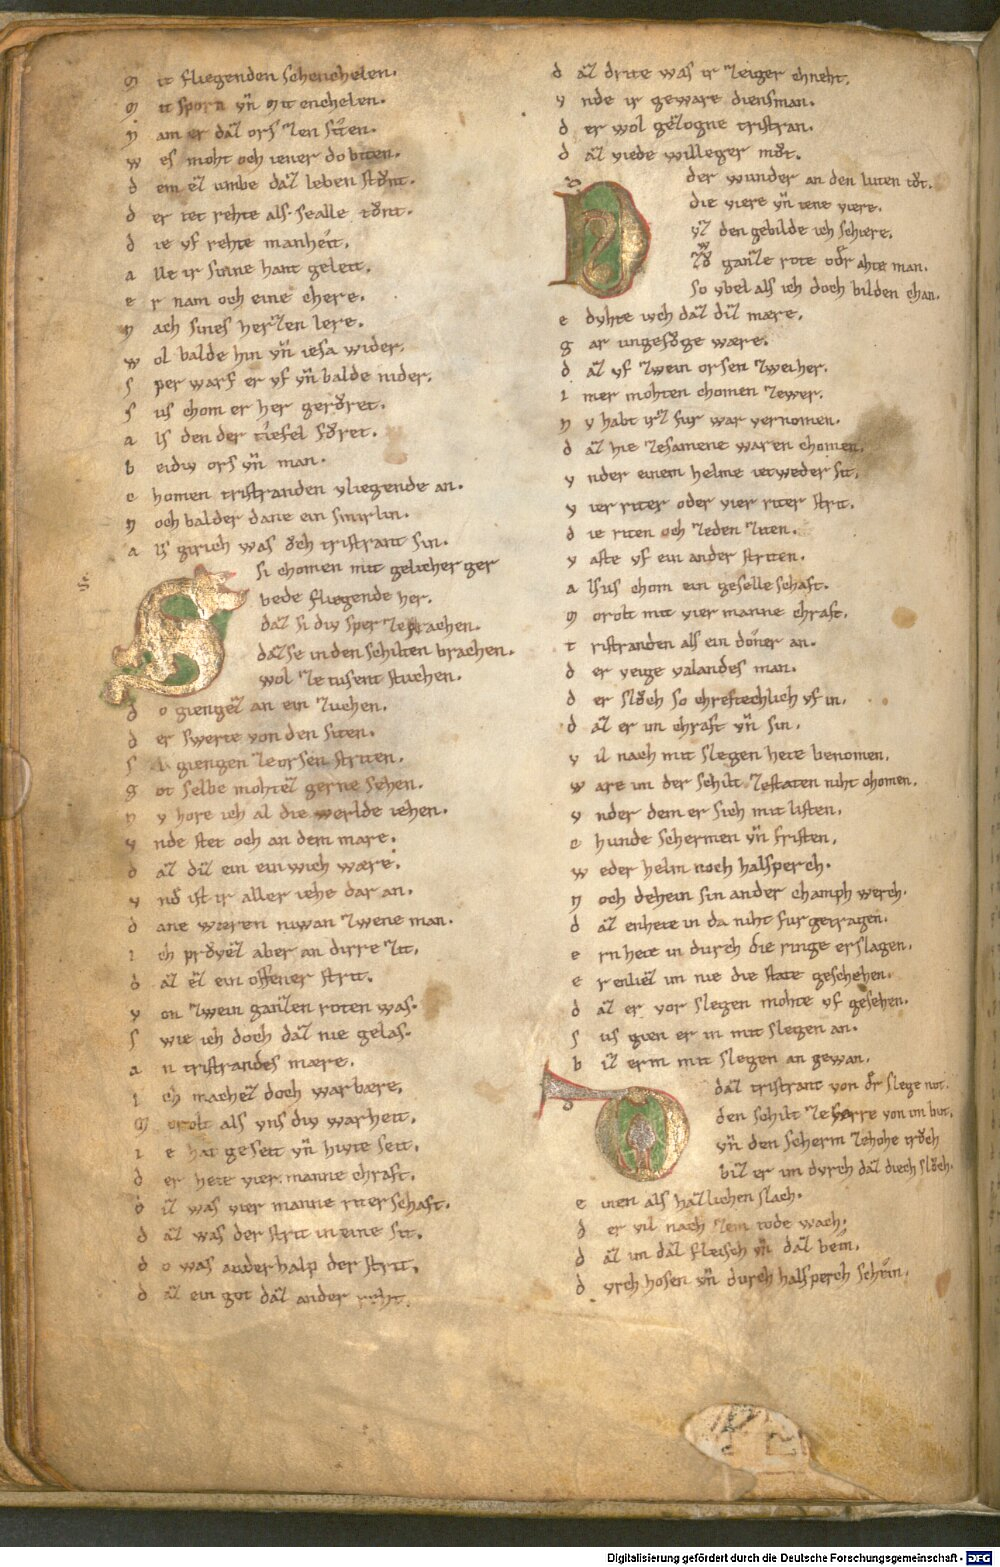 m it fliegenden schenchelen.
m it sporn vn̄ mit enchelen.
n am er daz ors zen siten.
w es moht och iener do biten.
d em ez umbe daz leben stůnt.
d er tet rehte als scalle tůnt.
d ie vf rehte manheit.
a lle ir sinne hant geleit.
e r nam och eine chere.
n ach sines herzen lere.
w ol balde hin vn̄ iesa wider.
s per warf er vf vn̄ balde nider.
s us chom er her gerůret.
a ls den der tiefel fůret.
b eidiv ors vn̄ man.
c homen tristranden vliegende an.
n och balder dane ein smirlin.
a ls girich was ůch tristrant sin.
S si chomen mit gelicher ger
bede fliegende her.
daz si div sper zeprachen.
daz se in den schilten brachen.
wol ze tusent stuchen.
d o giengez an ein zuchen.
d er swerte von den siten.
s i giengen ze orsen striten.
g ot selbe mohtez gerne sehen.
n v hore ich al die werlde iehen.
v nde stet och an dem mare.
d az diz ein einwich wære.
v nd ist ir aller iehe dar an.
d ane waren niwan zwene man.
i ch průvez aber an dirre zit.
d az ez ein offener strit.
v on zwein ganzen roten was.
s wie ich doch daz nie gelas.
a n tristrandes mære.
i ch machez doch warbære.
m orolt als vns div warheit.
i e hat geseit vn̄ hivte seit.
d er hete vier manne chraft.
d iz was vier manne riterschaft.
d az was der strit in eine sit.
d o was anderhalp der strit.
d az ein got daz ander reht.
d az drite was ir zeiger chneht.
v nde ir geware diensman.
d er wol gezogne tristran.
d az vierde willeger můt.
D der wunder an den luten tůt.
die viere vn̄ iene viere.
vz den gebilde ich schiere.
zwo ganze rote oder ahte man.
so vbel als ich doch bilden chan.
e dvhte iuch daz diz mære.
g ar ungefůge wære.
d az vf zwein orsen zwei her.
i mer mohten chomen zewer.
n v habt irz fur war vernomen.
d az hie zesamene waren chomen.
v nder einem helme ietweder sit.
v ier riter oder vier riter strit.
d ie riten och zeden ziten.
v aste vf ein ander striten.
a lsus chom ein geselleschaft.
m orolt mit vier manne chraft.
t ristranden als ein doner an.
d er veige valandes man.
d er slůch so chreftechlich vf in.
d az er im chraft vn̄ sin.
v il nach mit slegen hete benomen.
w are im der schilt zestaten niht chomen.
v nder dem er sich mit listen.
c hunde schermen vn̄ fristen.
w eder helm noch halsperch.
n och dehein sin ander champhwerch.
d az enhete in da niht furgetragen.
e rn hete in durch die ringe erslagen.
e r enliez im nie die state geschehen.
d az er vor slegen mohte vf gesehen.
s us gien er in mit slegen an.
b iz erm mit slegen an gewan.
D daz tristrant von der slege not.
den schilt ze verre von im bot.
vn̄ den scherm zehohe trůch
biz er im dvrch daz diech slůch.
e inen als hazlichen slach.
d er vil nach zem tode wach.
d az im daz fleisch vn̄ daz bein.
d vrch hosen vn̄ durch halsperch schein.
Digitalisierung gefördert durch die Deutsche Forschungsgemeinschaft - DFG